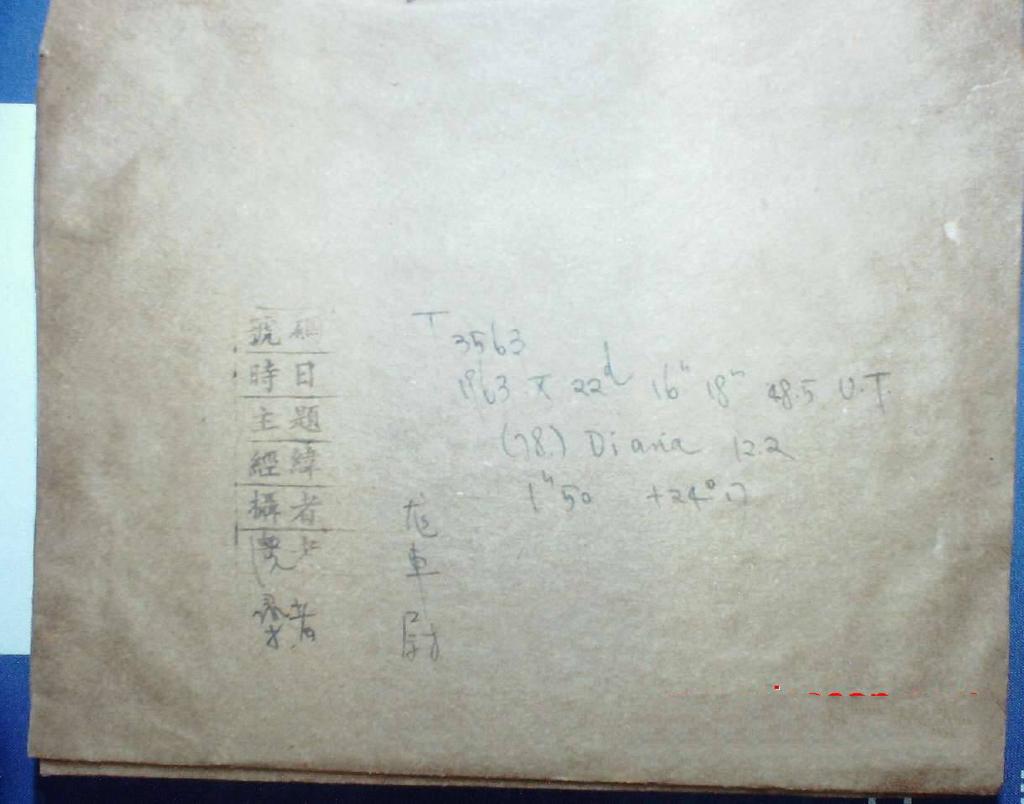 號 碼 T 3563
時 日 1963 X 22d 16h 18m 48.5 U.T.
主 題 (78) Diana 12.2
經 緯 1h 50 +24° 17
攝 者 龙
車
者 尉